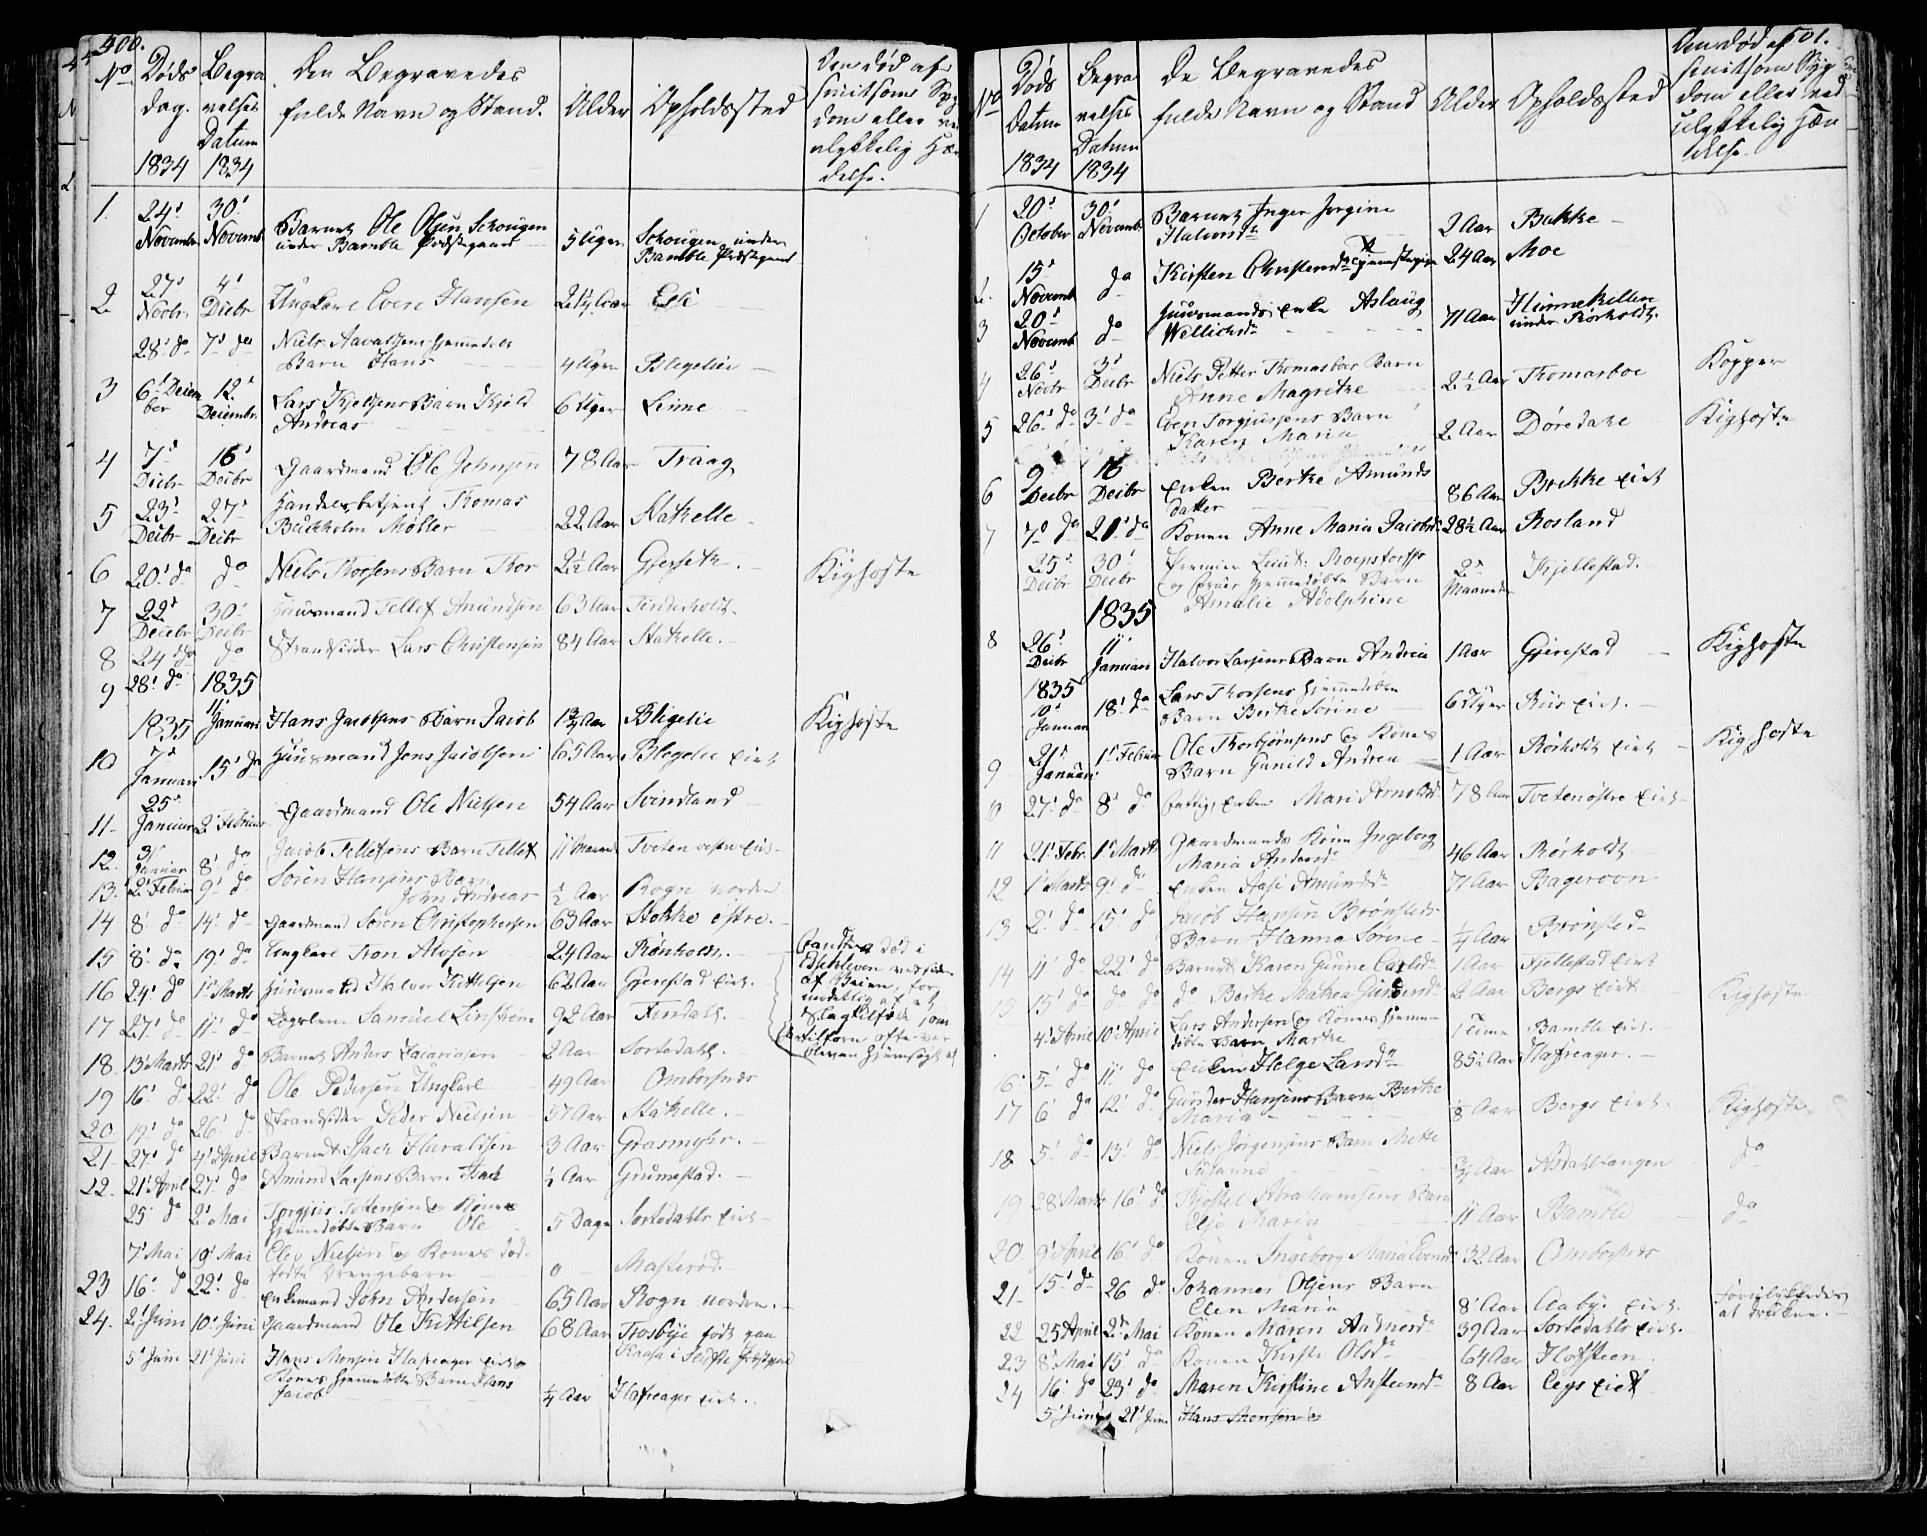 400.
No Døds dag. 1834 Begravelses Datum 1834 Den Begravedes fulde Navn og Stand. Alder Opholdssted Om død af smitsom Syg dom eller ved ulykkelig Hæn delse.
1. 24d Novembr 30d Novembr Barnet Ole Olsen Schougen
under Bamble Præstegaard 5 Uger Schougen under
Bamble Præstegaard
2. 27d Novbr. 4d Decbr Ungkarl Even Hansen 21¼ Aar
28d do 7d do Niels Aavaldsens hjemmedøbt
Barn Hans 4 Uger Blegelie
3 6d Decem ber 12d Decembr. Lars Kjeldsens Barn Kjeld
Andreas 6 Uger Leine
4 7d Decbr 16d Decbr Gaardmand Ole Johnsen 78 Aar Traag
5 23d Decbr 27d Decbr Handelsbetjent Thomas
Buckholm Møller 22 Aar Stathelle
6 20d do do Niels Thorsens Barn Thor 2½ Aar Gjerseth. Kighoste
7 22d Decbr 30d Decbr Huusmand Tellef Amundsen 63 Aar Finderholt.
8 24 do do Strandsidder Lars Christensen 84 Aar Stathelle.
9 28d do 1835
11d Januari Hans Jacobsens Barn Jacob 1¾ Aar Bligelie Kighoste
1835
10 7d Januari 15d do Huusmand Jens Jacobsen 65 Aar Blegelie Eiet
11. 25d Januari 2d Februar Gaardmand Ole Nielsen 54 Aar Svindland
12. 31 Januar 8d do Jacob Tellefsens Barn Tellef 11 Maaned Tveten vestre Eiet
13. 2d Februar 9d do Søren Hansens Barn
John Andreas ½ Aar Rogn nordre
14 8d do 14d do Gaardmand Søren Christophersen 63 Aar Stokke østre.
15 8d do 19d do Ungkarl Tron Alvsen 24 Aar Rønholt. Fandtes død i
16 24d do 1d Marts Huusmand Halvor Kittelsen 62 Aar Gjerestad Eiet. af Veien, for
17 27d do 11d do Lægdslem Samuel Linstrøm 92 Aar Findahl. Slagtilfælde, som
18. 13d Marts 21d do Barnet Anders Zachariasen 2 Aar Sortedahl.
19 16d do 22d do Ole Pedersen Ungkarl 49 Aar Omborsnæs
20 19d do 26d do Strandsidder Peder Nielsen 57 Aar Stathelle.
21. 27d do 4d April Barnet Isach Haraldsen 3 Aar Grasmyhr.
22. 21d April 27d do Amund Larsens Barn Isach ½ Aar Grummestad.
25d do 2d Mai Torgius Tostensen og Kones
hjemmedøbte Barn Ole 5 Dage Sortedahls Eiet
7d Mai 19d Mai Elev Nielsen og Kones død-
fødte Drengebarn 0 Masterød.
23 16d do 22d do Enkemand John Andersen 65 Aar Rogn nordre.
24. 2d Juni 10d Juni Gaardmand Ole Kittilsen 68 Aar Trosbye født paa
Kaasa i Præstegjeld
5d Juni 21d Juni Hans Monsen Hafreager Eiet og
Kones hjemmedøbte Barn Hans
Jacob ¼ Aar Hafreager Eiet.
401.
No Døds Datum 1834 Begravelses Datum 1834 De Begravedes fulde Navn og Stand Alder Opholdssted Om død af smitsom Syg dom eller ved ulykkelig Hæn delse.
1 20d October 30d Novembr Barnet Inger Jørgine
Halvorsdtr 2 Aar Bakke
2. 15d Novembr do Kirsten Christensdtr Tjenestepige 24 Aar Moe
3 20d Novembr do Huusmands Enke Aslaug
71 Aar
under Rørholdt.
4 26d Novbr 3d Decbr Niels Petter Thomasboe Barn
Anne Magrethe 2½ Aar Thomasboe Kopper
5 26d do 3d do Even Torgiussens Barn
Karen Maria 2 Aar Døredahe Kighoste
6 9 Decbr 16 Decbr Enken Berthe Amunds
datter 86 Aar Bakke Eiet
7 7d do 20d do Konen Anne Maria Jacobsdtr 28½ Aar Rosland
25d Decbr 30d Decbr Premier Lieut:
og Frues hjemmedøbte Barn
Amalie Adolphine 2 Maaneder Kjellestad.
1835
8 26d Decbr 11 Januari Halvor Larsens Barn Andrea 1 Aar Gjerestad Kighoste
1835
10d Januari 18d do Lars Thorsens hjemmedøbte
Barn Berthe Sørine 6 Uger Riis Eiet.
9 21d Januari 1d Februar Ole Thorbjørnsens og Kones
Barn Gunild Andrea 1 Aar Rørholt Eiet Kighoste
10 27d do 8d do Fattig Enke Mari Arnoldsdtr 78 Aar Tveten østre Eiet
11 21d Febr. 1d Mart Gaardmands Kone Ingeborg
Maria Andersdtr 46 Aar Rørholdt
12 1d Marts 9d do Enken Aase Amundsdtr 71 Aar Bageroon
13 2d do 15d do Jacob Hansen Brønsteds
Barn Hanna Sørine ¼ Aar Brønsted
14 11d do 22d do Barnet Karen Gunne Carlsdtr 1 Aar Fjellestad Eiet
15 15d do do do do Berthe Mathea Gundersdtr 2 Aar Bergs Eiet Kighoste
4d April 10d April Lars Andersen og Kones hjemme
døbte Barn Marthe 1 Time Bamble Eiet.
16. 5d do 11d do Enken Helge Larsdtr 85½ Aar Hafreager.
17 6d do 12d do Gunder Hansens Barn Berthe
Maria ⅛ Aar Bergs Eiet. Kighoste
18 5d do 13d do Niels Jørgensens Barn Mette
Susanne ¾ Aar Aasdahl tangen do
19 28d Marts 16d do Kjøstel Abrahamsens Barn
Else Maria 11 Aar Bamble do
20 9d April 16d do Konen Ingeborg Maria Evensdtr 32 Aar Omborsnæs
21. 15d do 26 do Johannes Olsens Barn
Elen Maria 8 Aar Aabye Eiet. Forulykkedes
at drukne.
22 25 April 2d Mai Konen Maren Aadnesdtr 39 Aar Sortedahls Eiet.
23 8d Mai 15d do Konen Kirsti Olsdtr 64 Aar Hofsteen.
24 16d do 23d do Maren Kirstine Anstensdtr 8 Aar Eeg Eiet
5d Juni 21d Juni Hans Monsen og